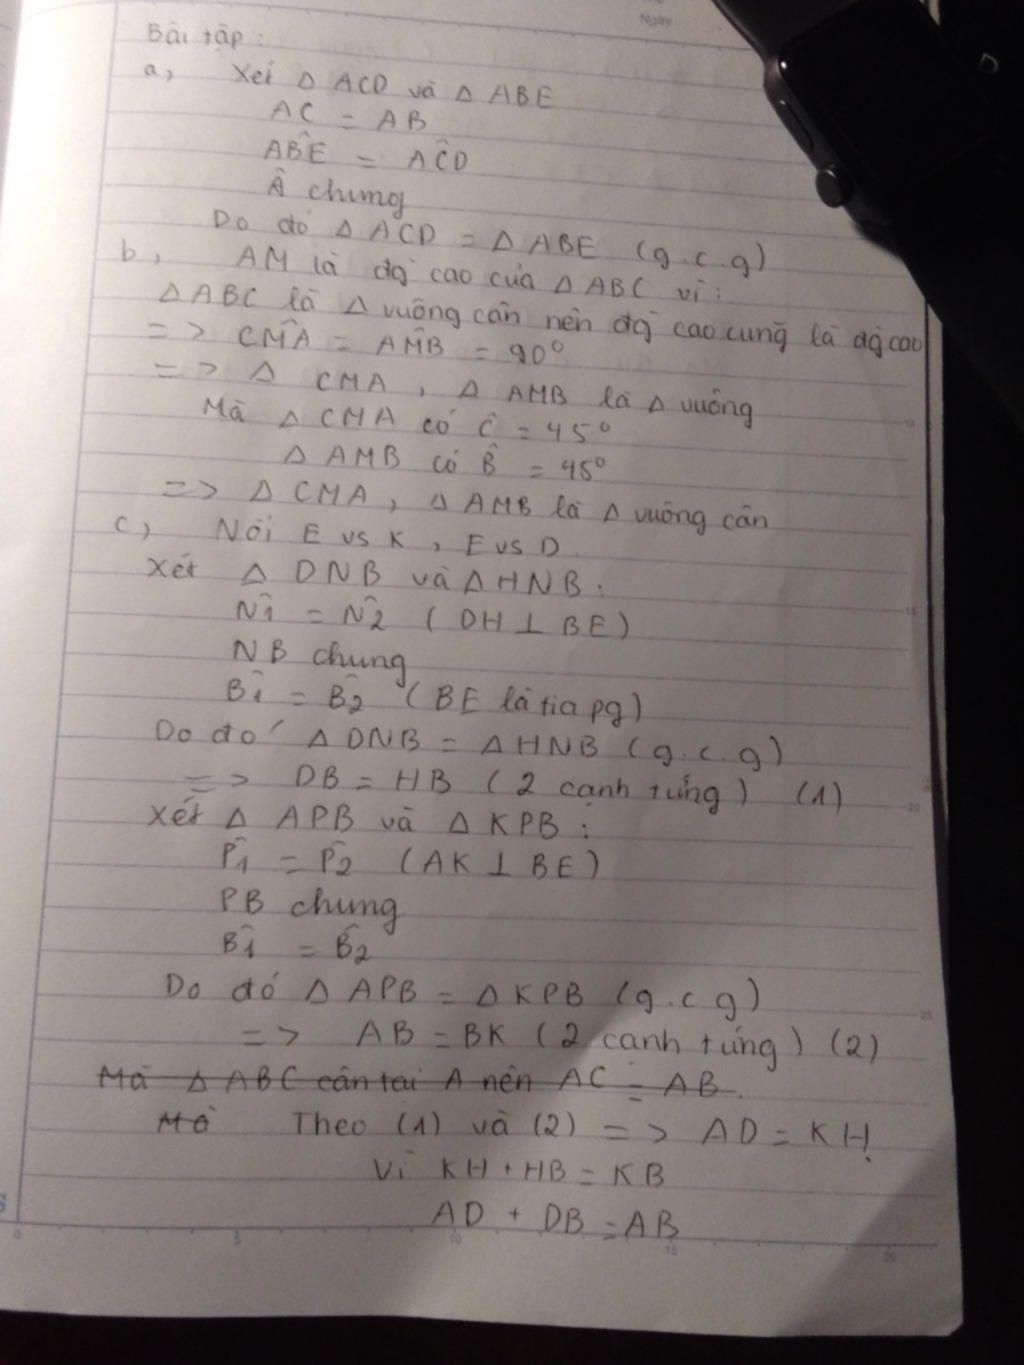 Ngày
Bài tập :
a, Xét Δ ACD và Δ ABE
AC = AB
AB̂E = AĈD
Â chung
Do đó Δ ACD = Δ ABE (g.c.g)
b, AM là đg cao của Δ ABC vì :
Δ ABC là Δ vuông cân nên đg cao cũng là đg cao
=> CM̂A = AM̂B = 90°
=> Δ CMA , Δ AMB là Δ vuông
Mà Δ CMA có Ĉ = 45°
Δ AMB có B̂ = 45°
=> Δ CMA , Δ AMB là Δ vuông cân
c, Nối E vs K , E vs D.
Xét Δ DNB và Δ HNB :
N̂1 = N̂2 ( DH ⊥ BE )
NB chung
B̂1 = B̂2 ( BE là tia pg )
Do đó Δ DNB = Δ HNB (g.c.g)
=> DB = HB ( 2 cạnh t ứng ) (1)
Xét Δ APB và Δ KPB :
P̂1 = P̂2 ( AK ⊥ BE )
PB chung
B̂1 = B̂2
Do đó Δ APB = Δ KPB (g.c.g)
=> AB = BK ( 2 cạnh t ứng ) (2)
Mà Δ ABC cân tại A nên AC = AB.
Mà Theo (1) và (2) => AD = KH
Vì KH + HB = KB
AD + DB = AB
0 5 10 15 20